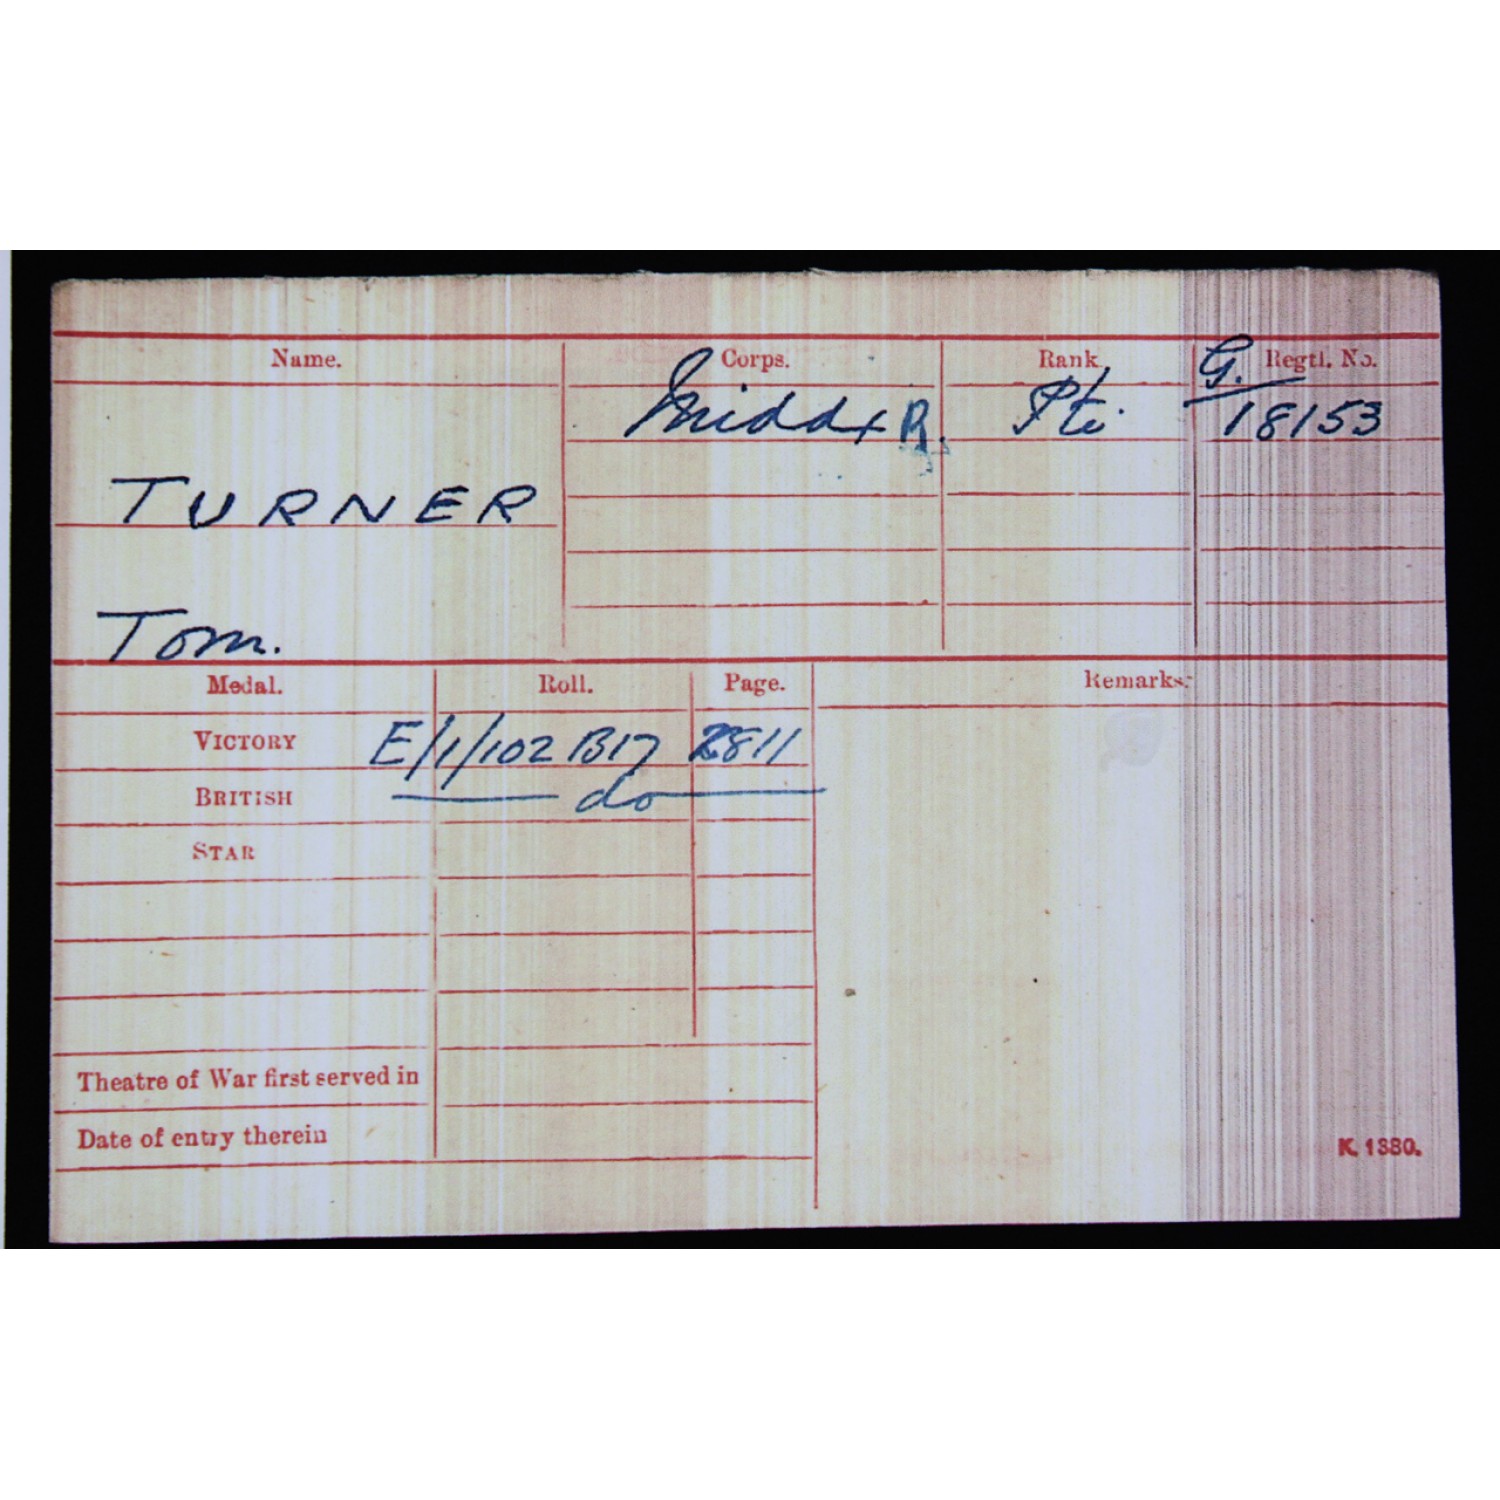 Name. Corps. Rank Regtl. No.
Middx R. Pte. G. 18153
TURNER
Tom.
Medal. Roll. Page. Remarks.
VICTORY E/1/102 B17 2811
BRITISH do
STAR
Theatre of War first served in
Date of entry therein
K. 1380.